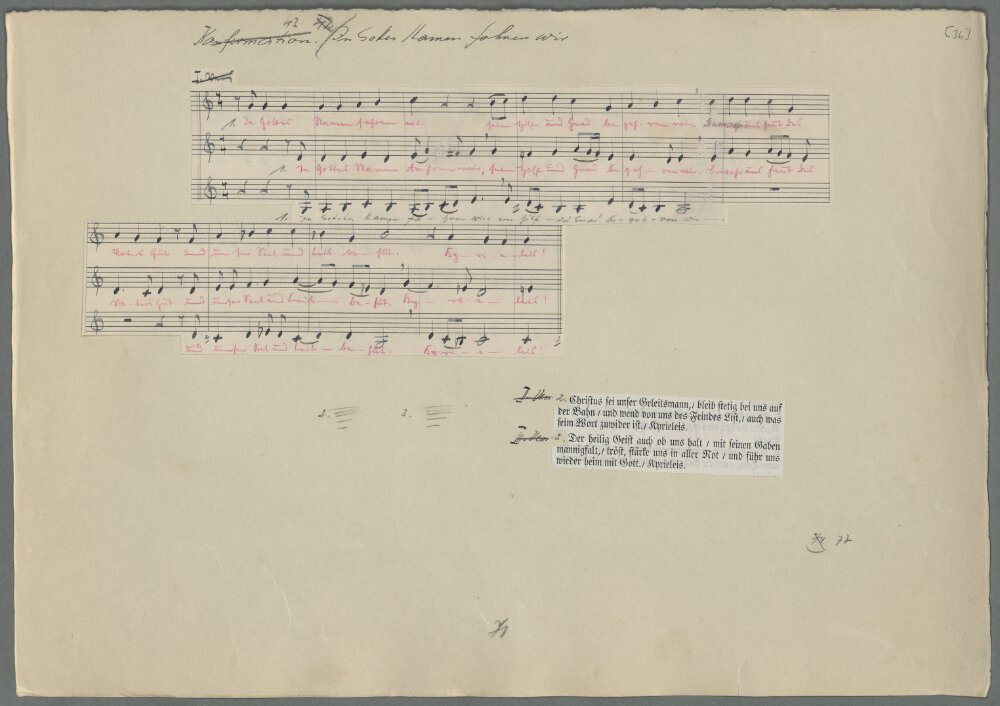 [36]
43
Konfirmation. In Gottes Namen fahren wir
1. In Gottes Namen fahren wir. sein Hilf und Gnad begehren wir. bewahr uns heut des
1. In Gottes Namen fahren wir, sein Hilf und Gnad begeh-ren wir. bewahr uns heut des
1. In Gottes Namen fah-ren wir, sein Hilf und Gnad be-geh-ren wir
Vaters Güt und un-ser Seel und Leib be-hüt. Ky-ri-e-leis!
Va-ters Güt und unser Seel und Leib be-hüt. Ky-ri-e-leis!
3
und unser Seel und Leib be-hüt. Ky-ri-e-leis!
2.
3.
2. Christus sei unser Geleitsmann, / bleib stetig bei uns auf
der Bahn / und wend von uns des Feindes List, / auch was
seim Wort zuwider ist. / Kyrieleis.
3. Der heilig Geist auch ob uns halt / mit seinen Gaben
mannigfalt, / tröst, stärke uns in aller Not / und führ uns
wieder heim mit Gott. / Kyrieleis.
77